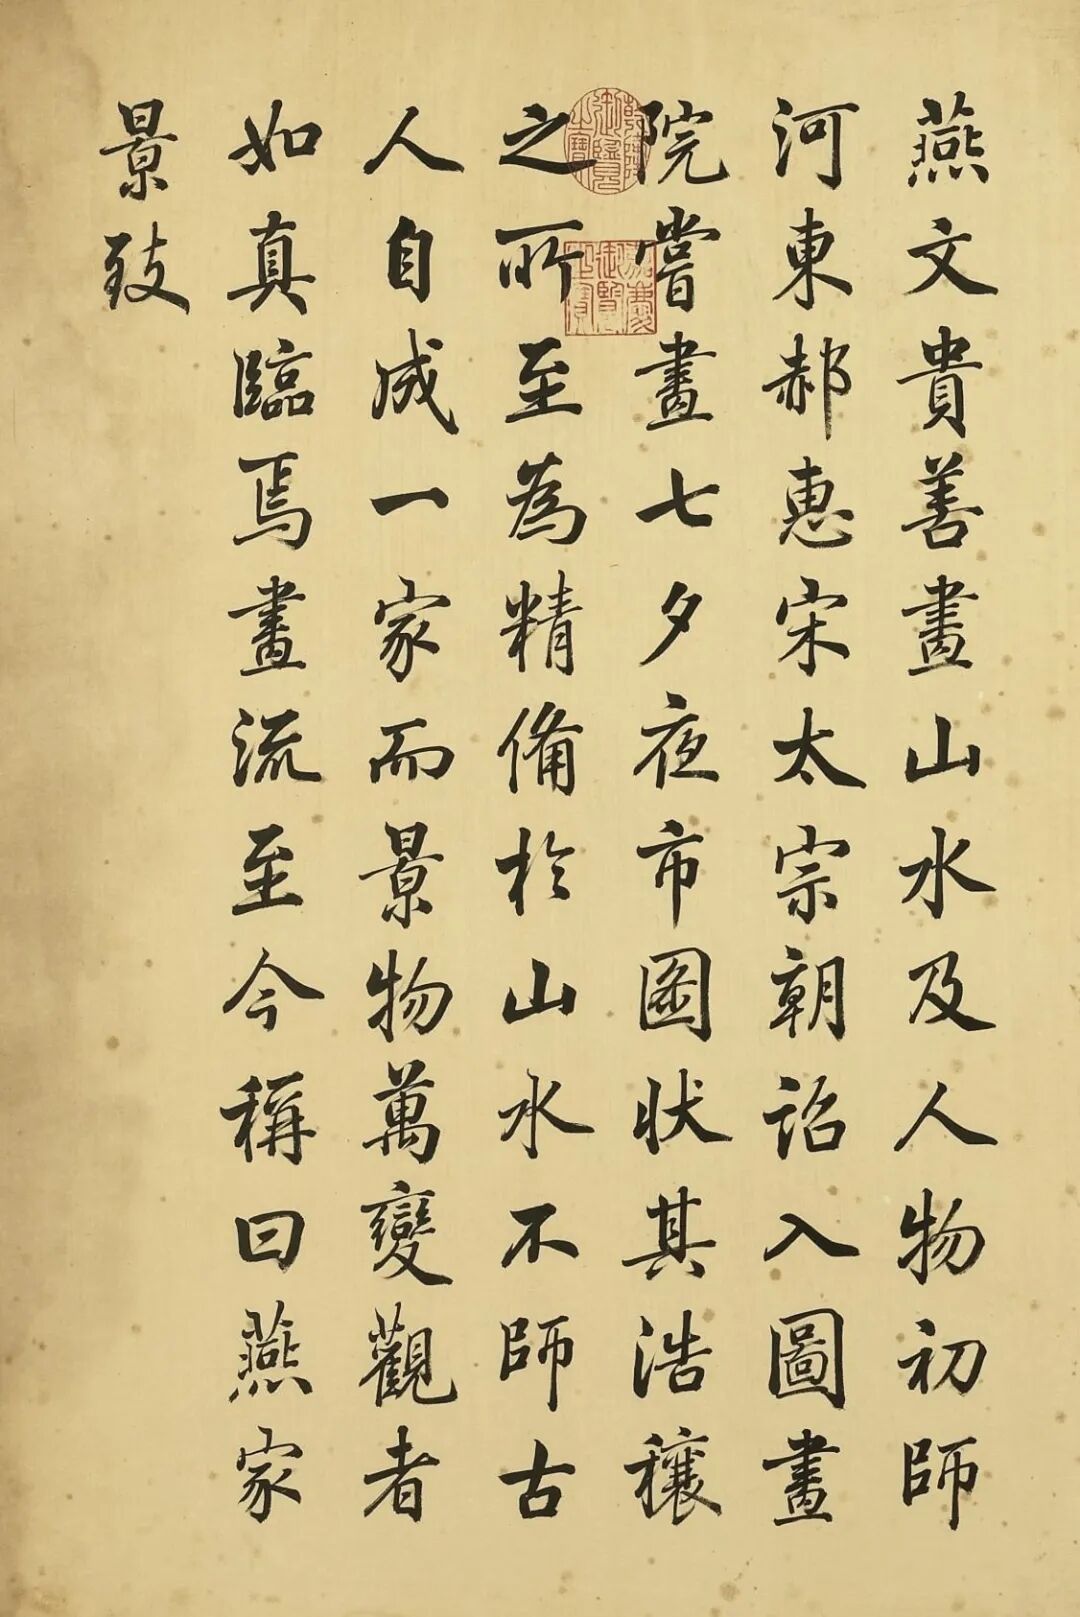 燕文貴善畫山水及人物初師
河東郝惠宋太宗朝詔入圖畫
院嘗畫七夕夜市圖狀其浩穰
之所至為精備於山水不師古
人自成一家而景物萬變觀者
如真臨焉畫流至今稱曰燕家
景致
乾隆御覽之寶
嘉慶御覽之寶